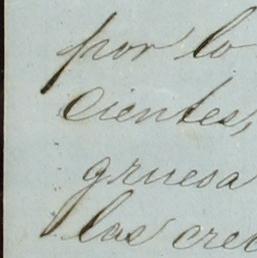 por lo
cientes,
gruesa
las crec